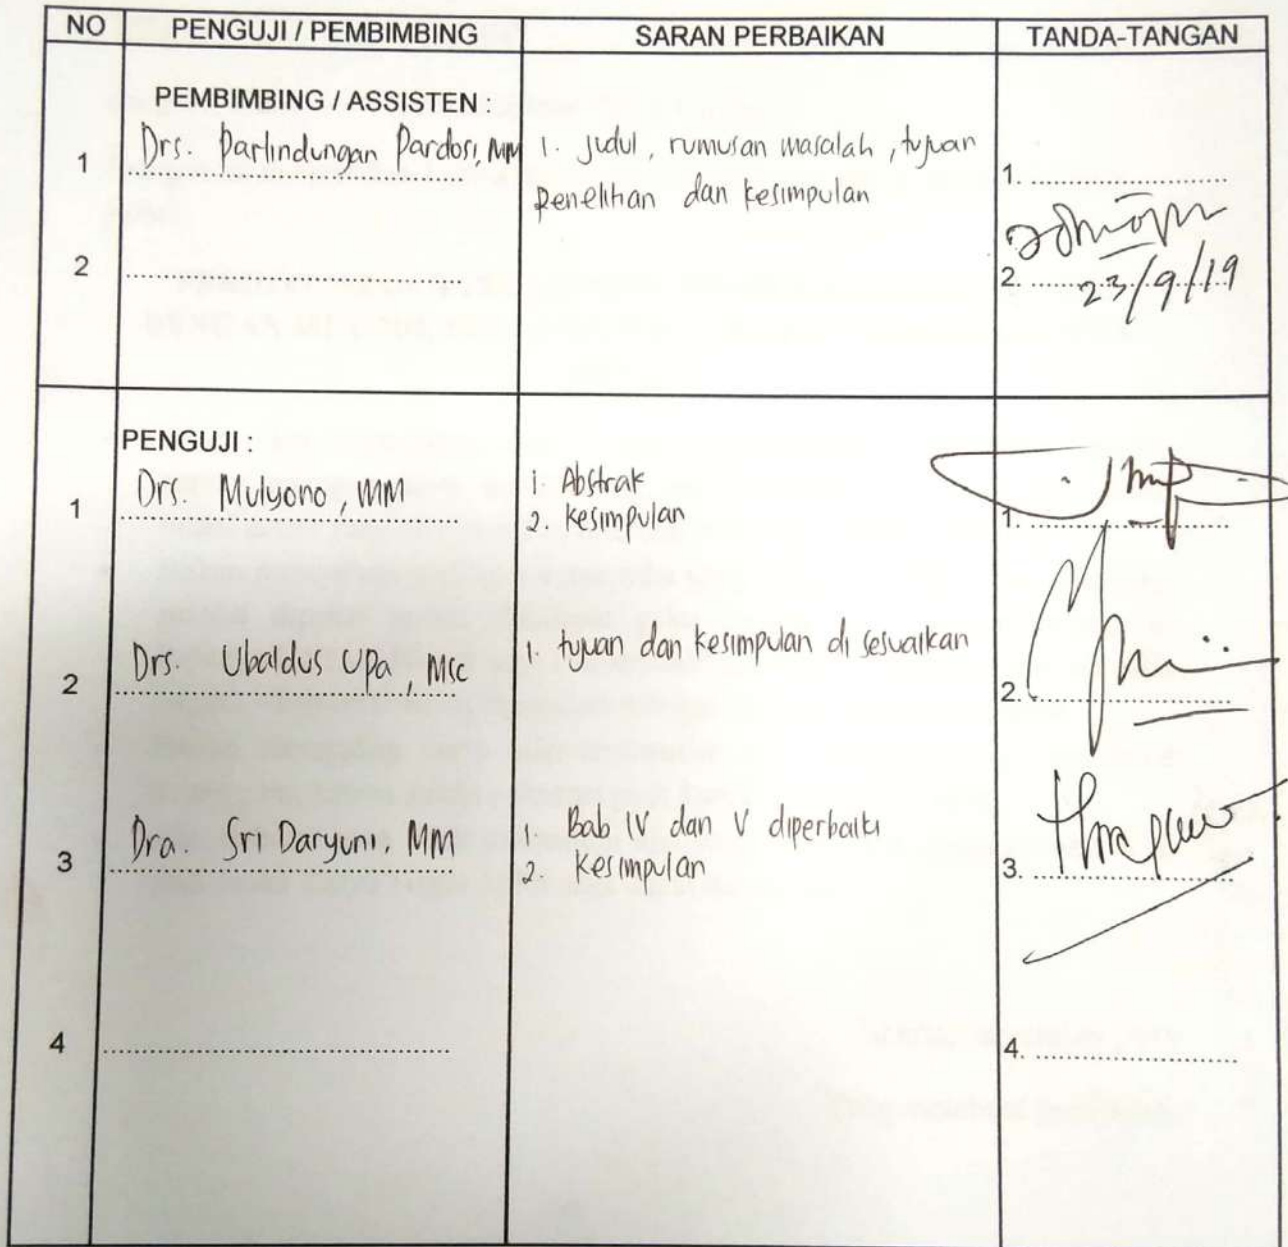 NO PENGUJI / PEMBIMBING SARAN PERBAIKAN TANDA-TANGAN
PEMBIMBING / ASSISTEN :
1 Drs. Parlindungan Pardosi, MM 1. Judul, rumusan masalah, tujuan
penelitian dan kesimpulan
1. ....................
2 ....................
2. 23/9/19
PENGUJI :
1 Drs. Mulyono, MM 1. Abstrak
2. Kesimpulan
1. ....................
2 Drs. Ubaldus Upa, Msc 1. tujuan dan kesimpulan di sesuaikan
2. ....................
3 Dra. Sri Daryuni, MM 1. Bab IV dan V diperbaiki
2. Kesimpulan
3. ....................
4 .................... 4. ....................